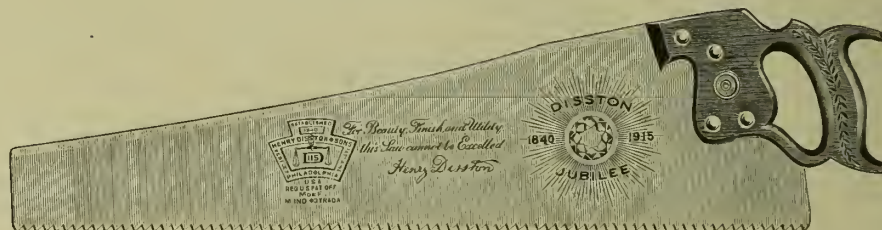 ESTABLISHED
1840
HENRY DISSTON & SONS
115
PHILADELPHIA
U S A
REG U S PAT OFF
For Beauty, Finish, and Utility,
this Saw cannot be Excelled
Henry Disston
DISSTON
1840 1915
JUBILEE